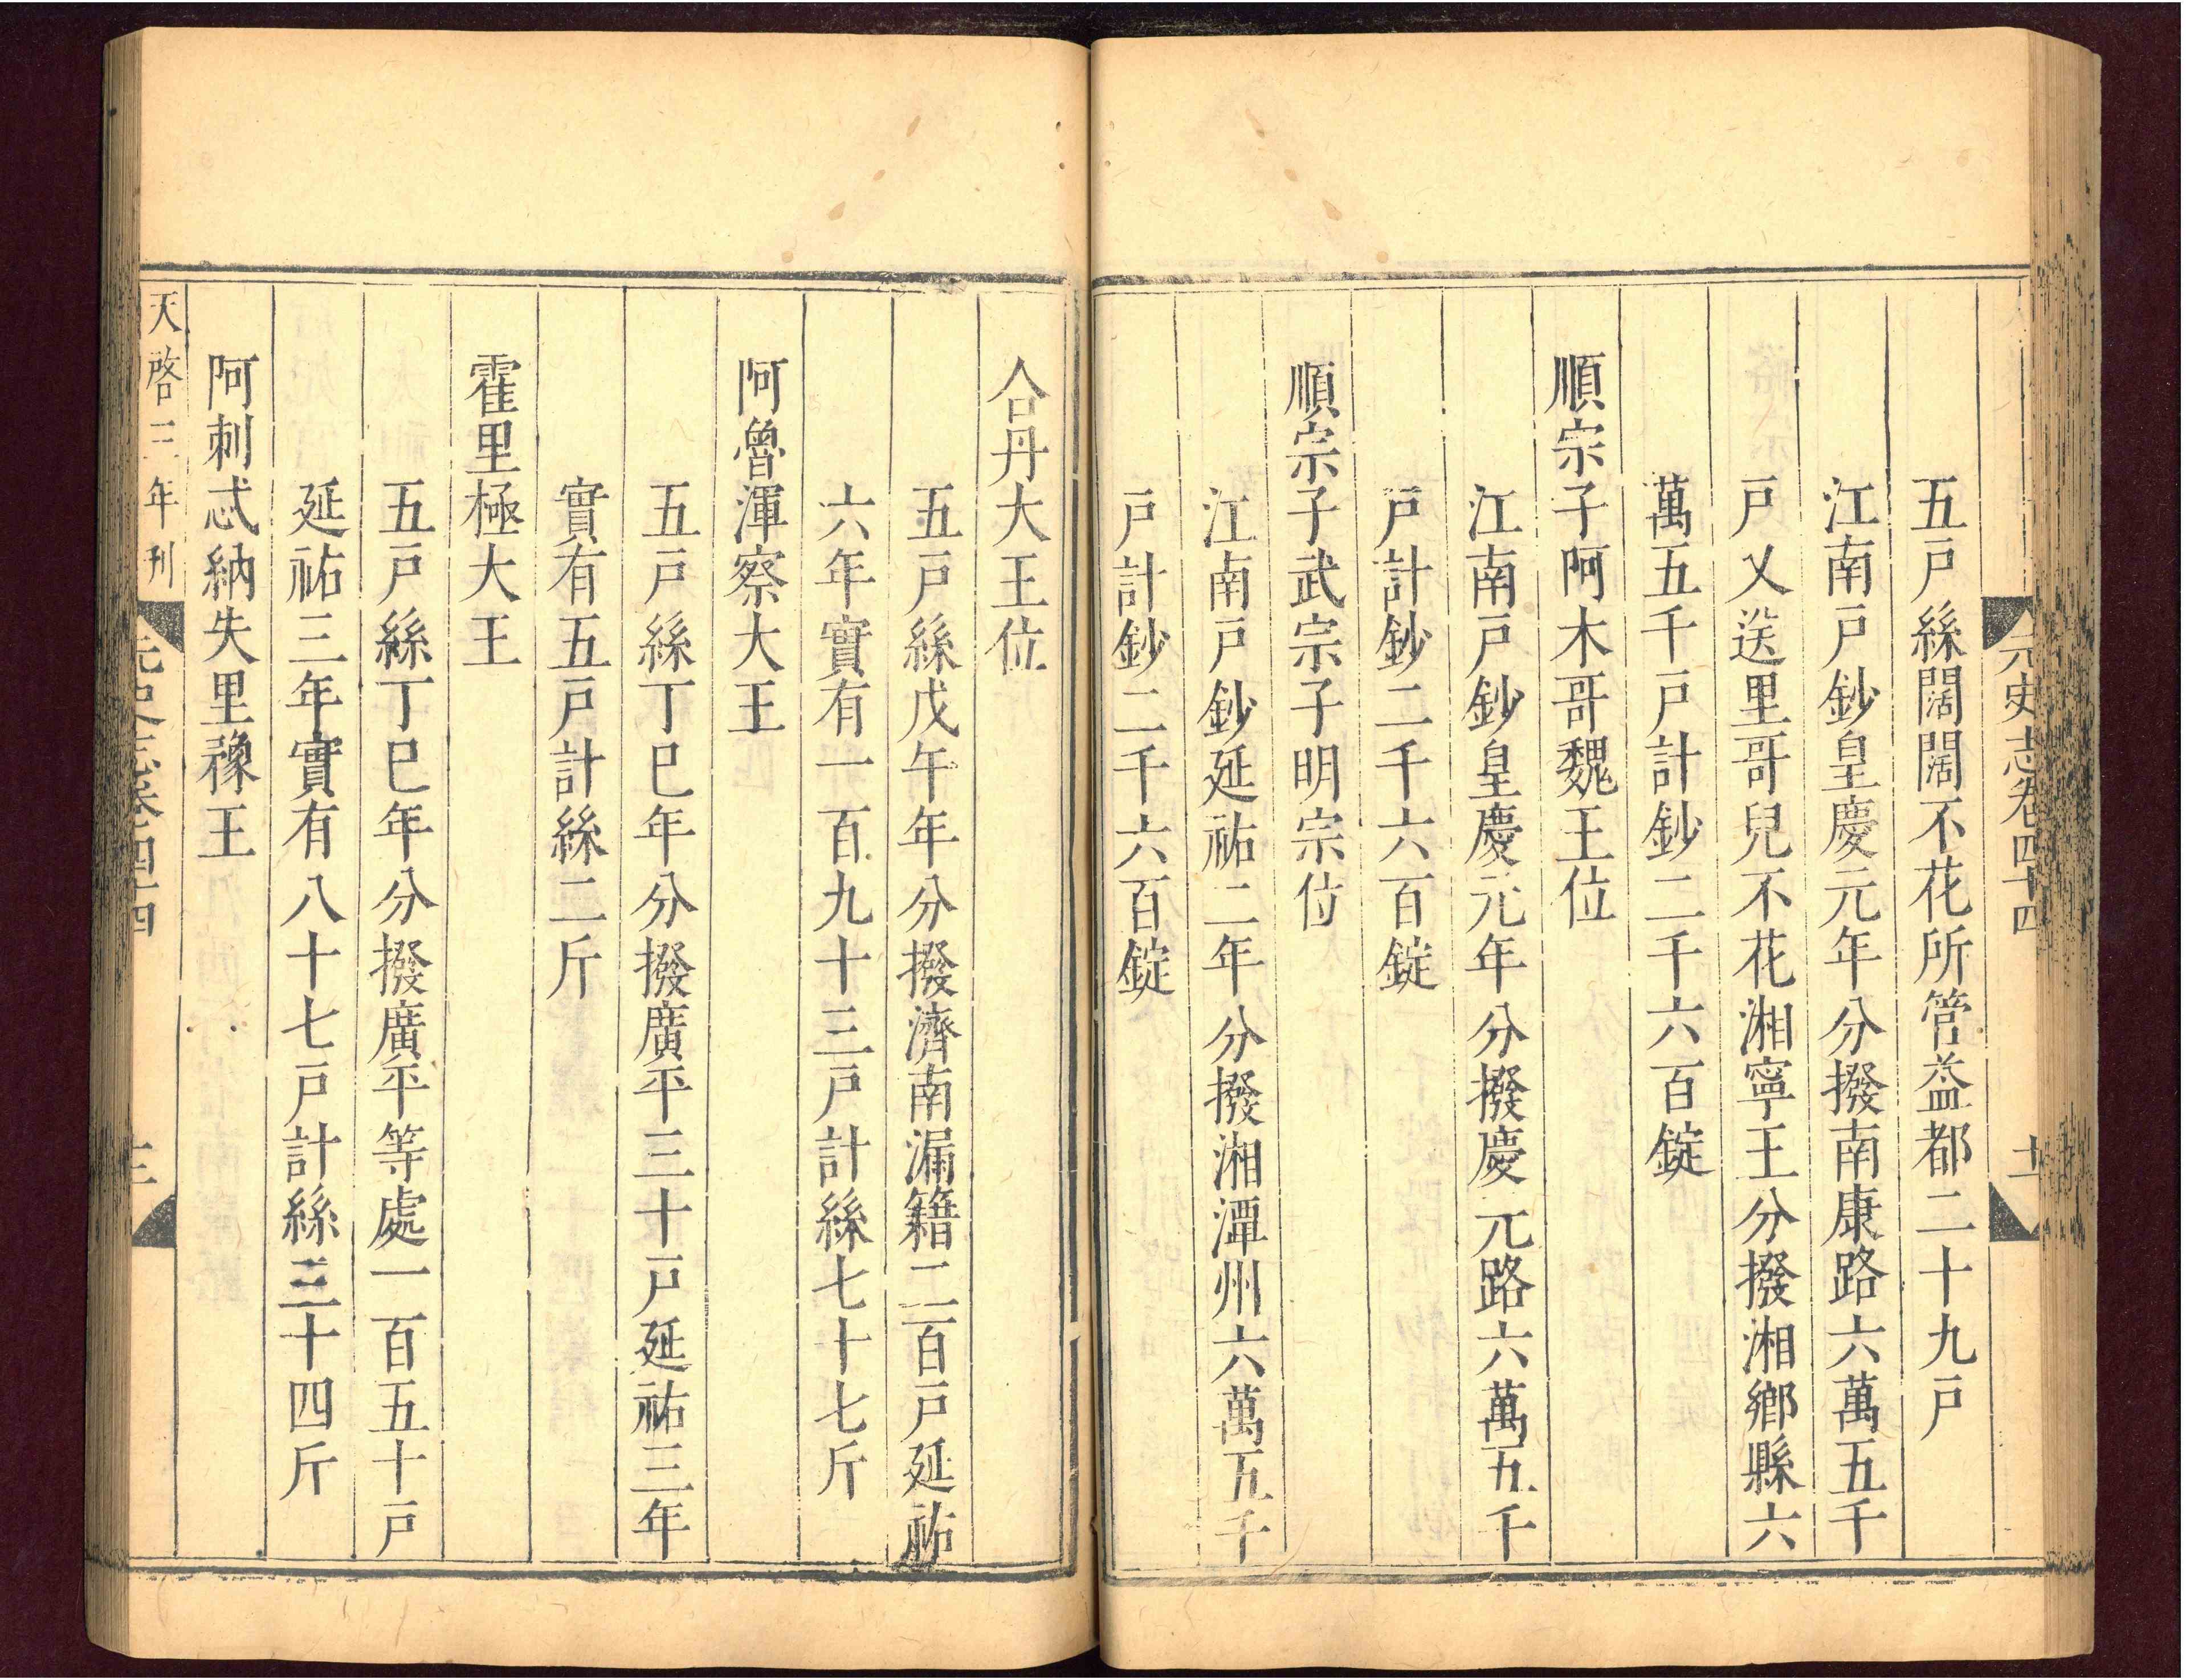 元史志卷四十四 十一
五戶絲闊闊不花所管益都二十九戶
江南戶鈔皇慶元年分撥南康路六萬五千
戶又送里哥兒不花湘寧王分撥湘鄉縣六
萬五千戶計鈔二千六百錠
順宗子阿木哥魏王位
江南戶鈔皇慶元年分撥慶元路六萬五千
戶計鈔二千六百錠
順宗子武宗子明宗位
江南戶鈔延祐二年分撥湘潭州六萬五千
戶計鈔二千六百錠
合丹大王位
五戶絲戊午年分撥濟南漏籍二百戶延祐
六年實有一百九十三戶計絲七十七斤
阿魯渾察大王
五戶絲丁巳年分撥廣平三十戶延祐三年
實有五戶計絲二斤
霍里極大王
五戶絲丁巳年分撥廣平等處一百五十戶
延祐三年實有八十七戶計絲三十四斤
阿刺忒納失里豫王
天啓三年刊 元史志卷四十四